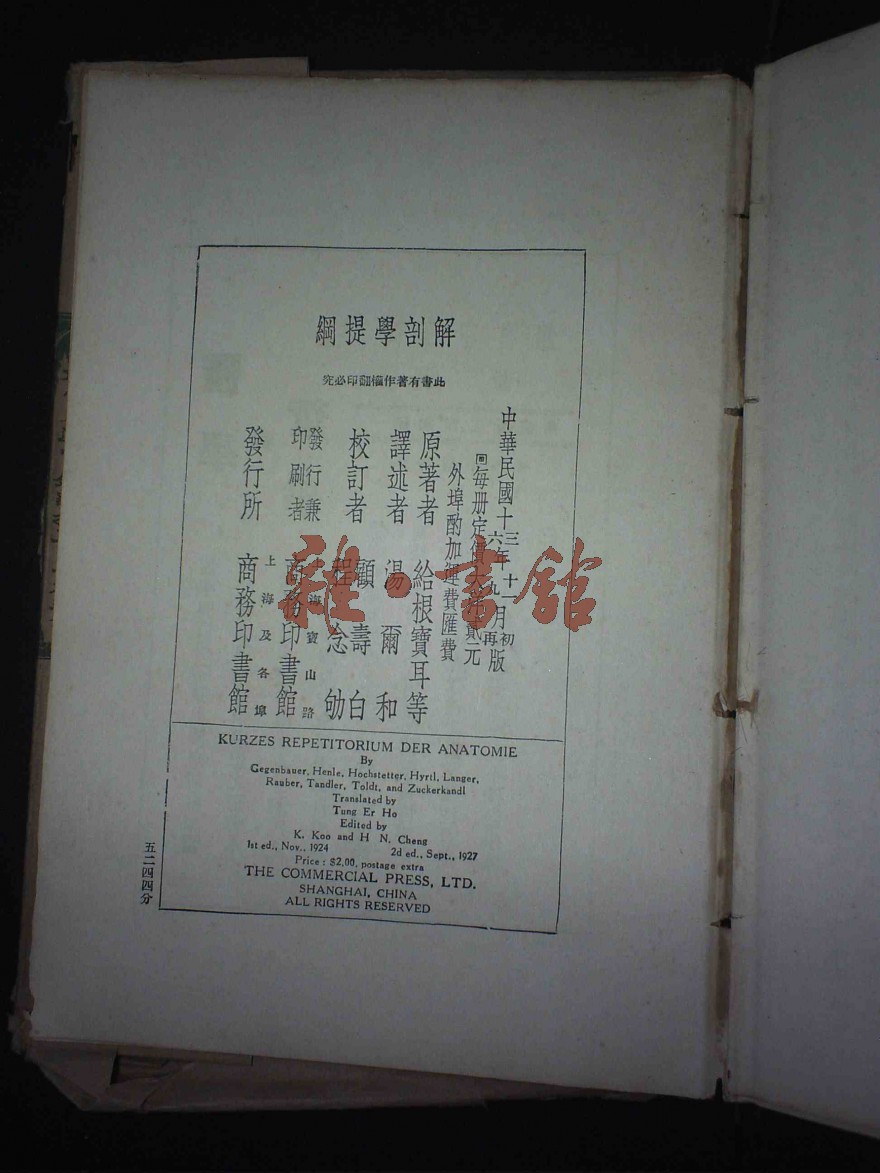 解剖學提綱
此書有著作權翻印必究
中華民國十三年十一月初版
六年九月再版
每册定價大洋貳元
外埠酌加運費匯費
原著者 給根寶耳等
譯述者 湯爾和
校訂者 顧壽白 程念劬
發行兼印刷者 上海寶山路 商務印書館
發行所 上海及各埠 商務印書館
KURZES REPETITORIUM DER ANATOMIE
By
Gegenbauer, Henle, Hochstetter, Hyrtl, Langer,
Rauber, Tandler, Toldt, and Zuckerkandl
Translated by
Tung Er Ho
Edited by
K. Koo and H N. Cheng
1st ed., Nov., 1924 2d ed., Sept., 1927
Price : $2.00, postage extra
THE COMMERCIAL PRESS, LTD.
SHANGHAI, CHINA
ALL RIGHTS RESERVED
五二四四分
雜·書館